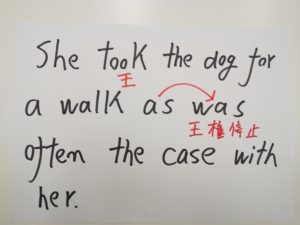 She took the dog for
王
a walk as was
王権停止
often the case with
her.